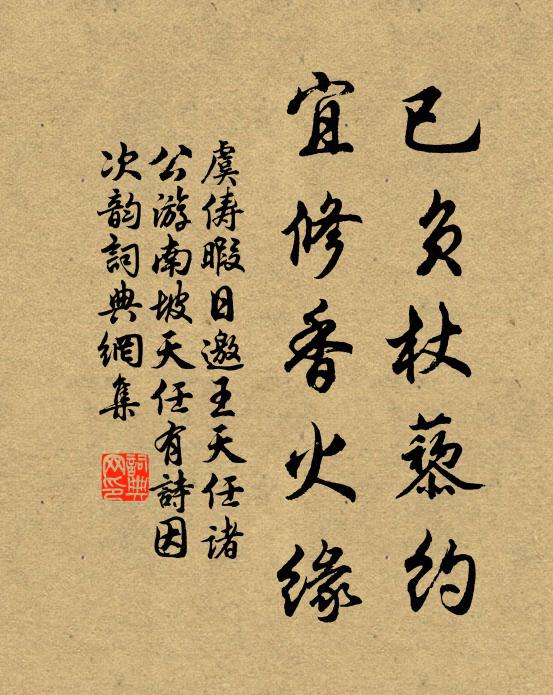 已负杖藜约
宜修香火缘
虞俦暇日邀王天任诸
公游南坡天任有詩因
次韵詞典網集
詞典
网印